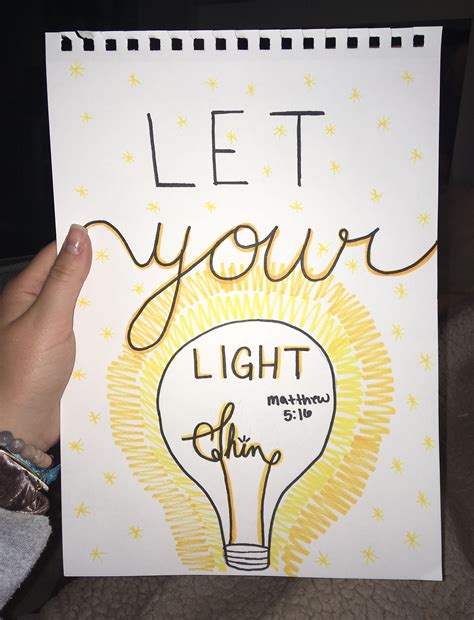 LET
your
LIGHT
matthew
5:16
Shine